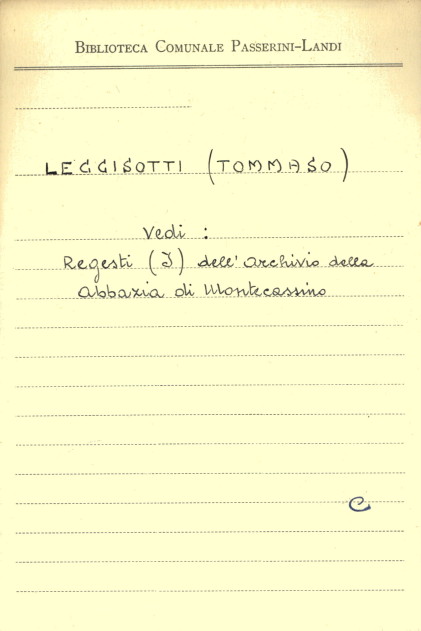 BIBLIOTECA COMUNALE PASSERINI-LANDI
LEGGISOTTI (TOMMASO)
Vedi :
Regesti (I) dell'archivio della
abbazia di Montecassino
C